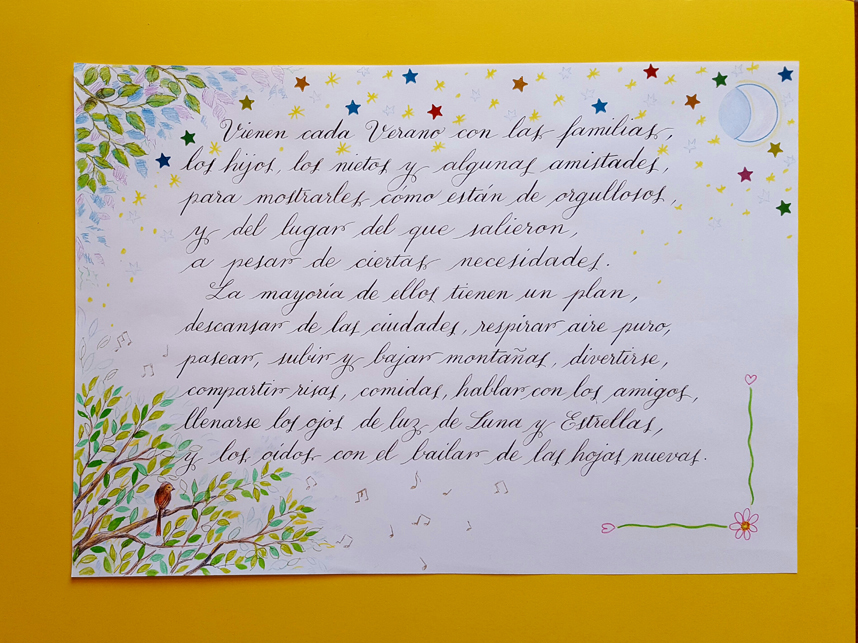 Vienen cada Verano con las familias,
los hijos, los nietos y algunas amistades,
para mostrarles como están de orgullosos,
y del lugar del que salieron,
a pesar de ciertas necesidades.
La mayoría de ellos tienen un plan,
descansar de las ciudades, respirar aire puro,
pasear, subir y bajar montañas, divertirse,
compartir risas, comidas, hablar con los amigos,
llenarse los ojos de luz de Luna y Estrellas,
y los oídos con el bailar de las hojas nuevas.